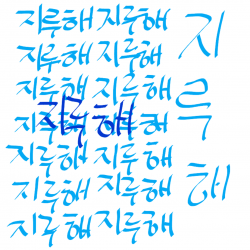 지루해 지루해
지루해 지루해
지루해 지루해
지루해 지루해
지루해 지루해
지루해 지루해
지루해 지루해
지루해
지
루
해